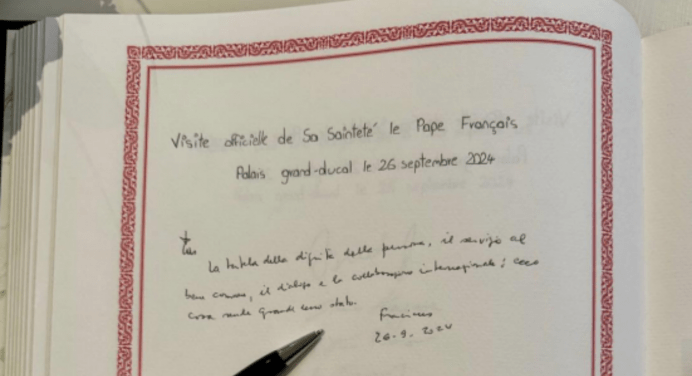 Visite officielle de Sa Sainteté le Pape Français
Palais grand-ducal le 26 septembre 2024
La tutela della dignità della persona, il servizio al
bene comune, il dialogo e la collaborazione internazionale; ecco
cosa rende grande uno stato.
Franciscus
26.9.2024